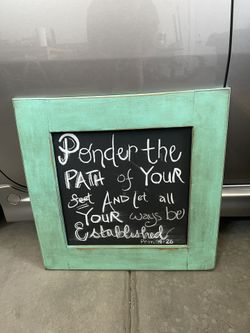 Ponder the
PATH of YOUR
feet AND let all
YOUR ways be
Established
Prov. 4-26